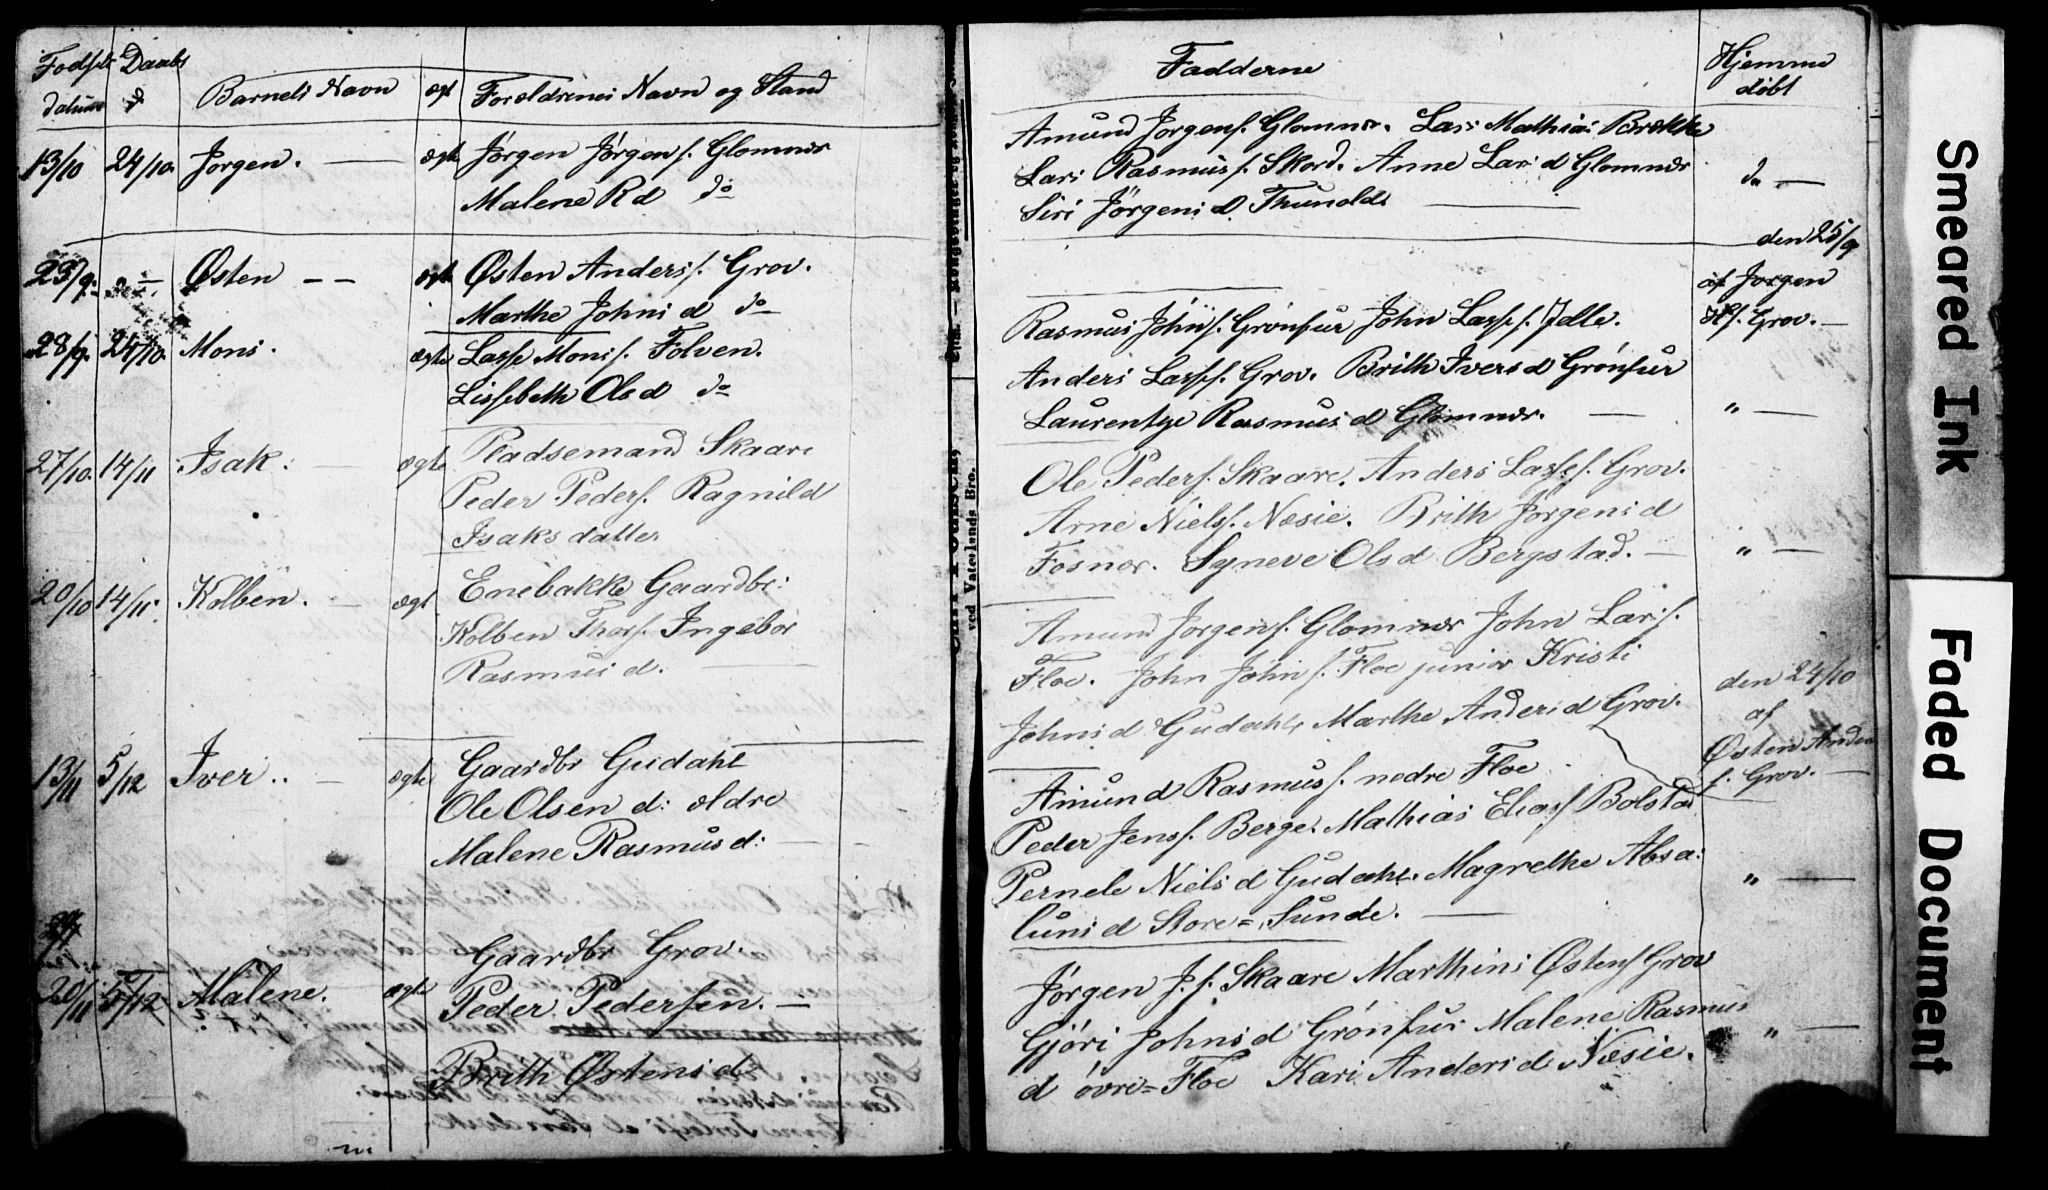 Fødsels Daabs
datum d
Barnets Navn ægt Foreldrenes Navn og Stand
13/10 24/10 Jørgen. — ægte Jørgen Jørgens. Glomnær
Malene R d do
29/9 " — Østen — — ægte Østen Anders s. Grov.
Marthe Johns d do
28/9 24/10 Mons. ægte Lasse Mons s. Folven.
Lissebeth Ols d do
27/10 14/11 Isak. — ægte Pladsemand Skaare
Peder Peders. Ragnild
Isaks datter
20/10 14/11 Kolben. — ægt Enebakke Gaardbr:
Kolben Thors. Ingebor
Rasmus d. —
13/11 5/12 Iver.. — ægte Gaardbr Gudahl
Ole Olsen d: ældre
Malene Rasmus d: —
Gaardbr Grov.
20/11 5/12 Malene. ægte Peder Pedersen. —
Brith Østens d
Fadderne
Hjemme
døbt
Amund Jørgens. Glomnær. Lars Mathias Brække
Lars Rasmus s. Skord. Anne Lars d Glomnær
Siri Jørgens d. Thunold. —
d" —
den 25/9
af Jørgen
s. Grov. —
Rasmus Johns. Grønfur John Lasses. Jelle.
Anders Lasses. Grov. Brith Ivers d Grønfur
Laurentze Rasmus d Glomnær. — " —
Ole Peders. Skaare. Anders Lasses. Grov.
Arne Niels s. Næsie. Brith Jørgens d
Fosnær. Syneve Ols d Bergstad. — " —
Amund Jørgens. Glomnær John Lars s.
Floe. John Johns. Floe junior Kristi
Johns d Gudahl, Marthe Anders d Grov.
den 24/10
af
Østen Anders
s. Grov. —
Amund Rasmus s. nedre Floe
Peder Jens s. Berge. Mathias Elias s Bolstad
Pernele Niels d Gudahl. Magrethe Absa:
luns d Store=Sunde. — " —
Jørgen J. s. Skaare Marthins Østens Grov
Gjøri Johns d Grønfur Malene Rasmus
d øvre=Floe Kari Anders d Næsie. " —
ved Vaterlands Bro.
Smeared Ink
Faded Document